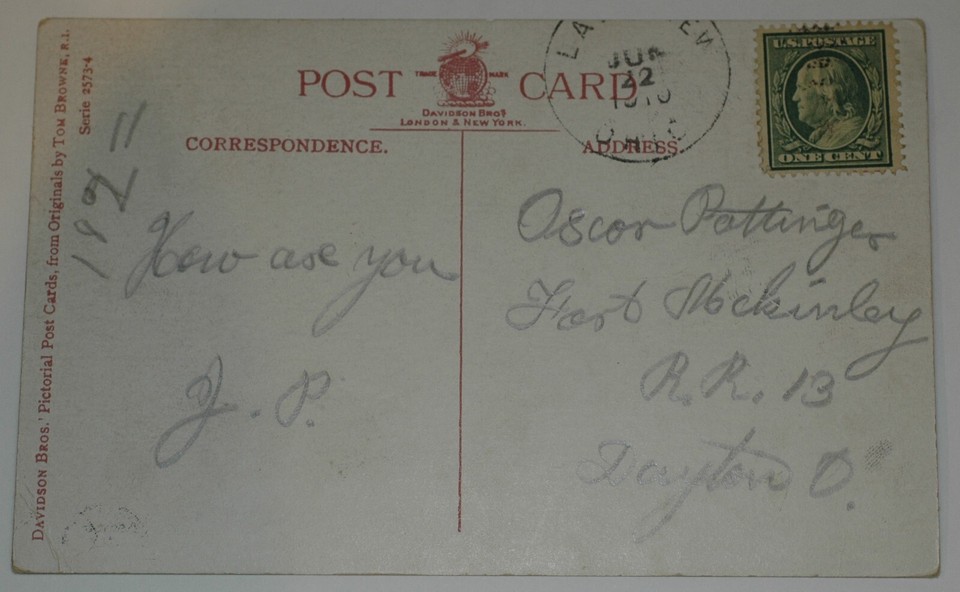 POST CARD
TRADE MARK
DAVIDSON BROS
LONDON & NEW YORK.
CORRESPONDENCE.
ADDRESS.
JUN
12
1910
OHIO
U.S. POSTAGE
ONE CENT
DAVIDSON BROS.' Pictorial Post Cards, from Originals by TOM BROWNE, R.I.
Serie 2573-4
How are you
J. P.
Oscar Pattinger
Fort Mckinley
R.R. 13
Dayton O.